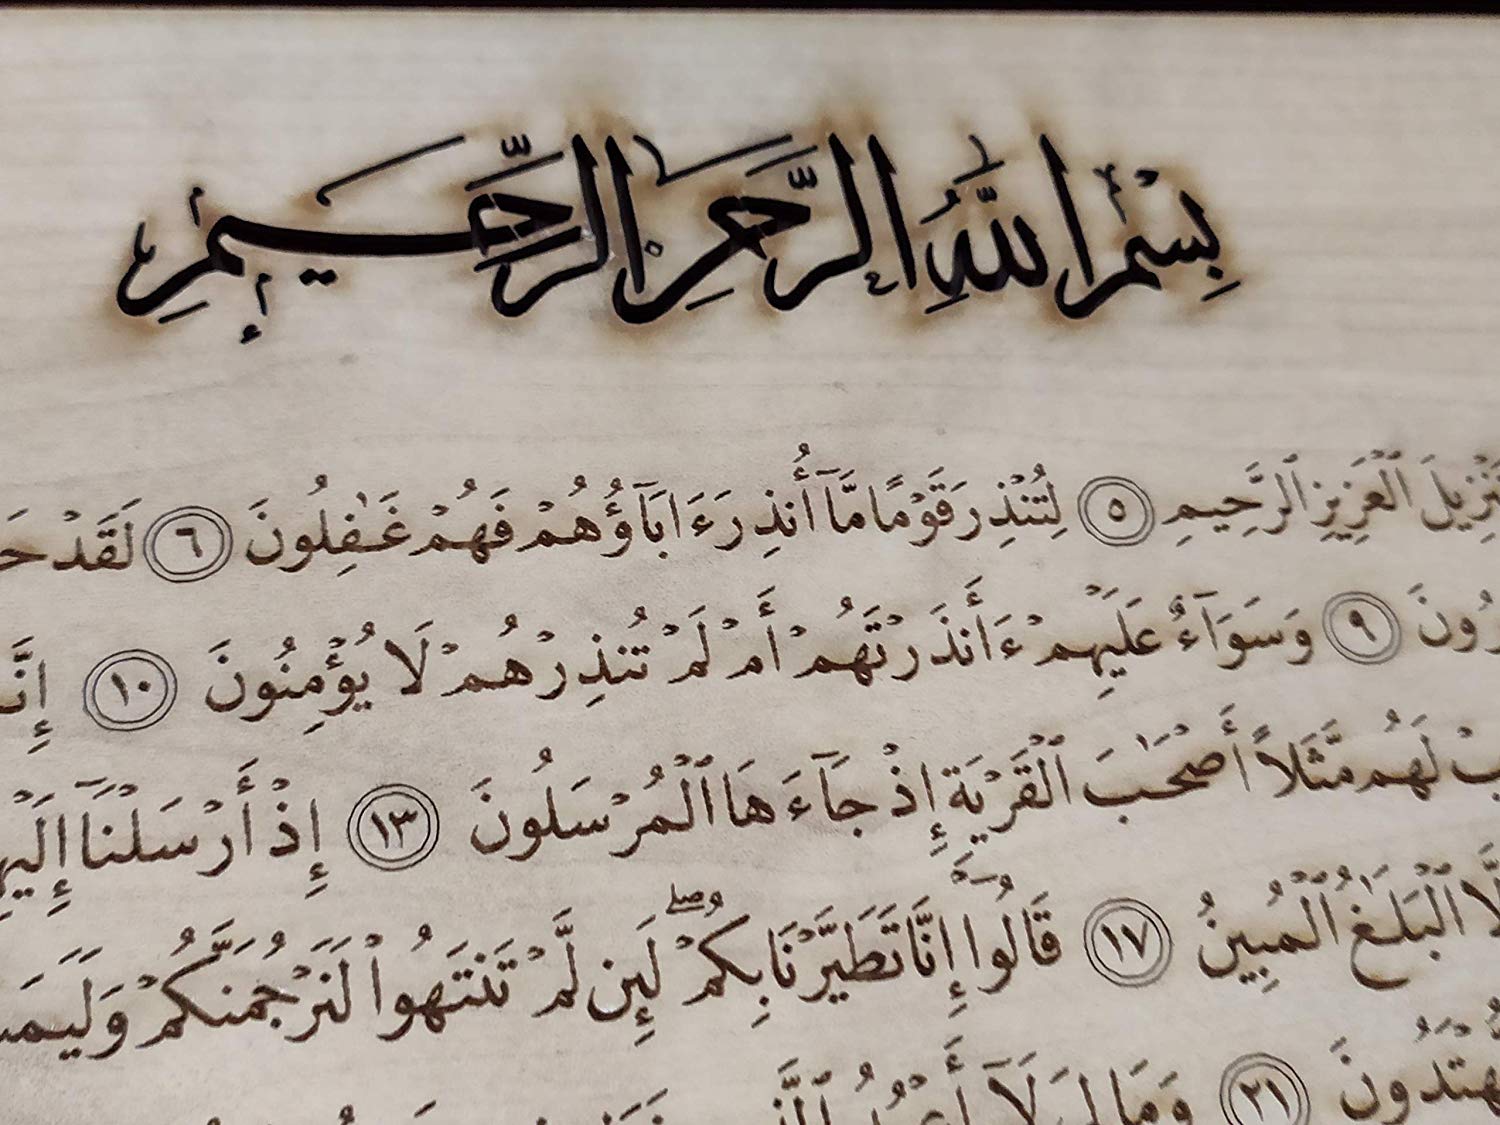 بِسْمِ اللَّهِ الرَّحْمَٰنِ الرَّحِيمِ
تَنْزِيلَ ٱلْعَزِيزِ ٱلرَّحِيمِ ٥ لِتُنْذِرَ قَوْمًا مَّآ أُنْذِرَ ءَابَآؤُهُمْ فَهُمْ غَٰفِلُونَ ٦ لَقَدْ حَ
رُونَ ٩ وَسَوَآءٌ عَلَيْهِمْ ءَأَنذَرْتَهُمْ أَمْ لَمْ تُنذِرْهُمْ لَا يُؤْمِنُونَ ١٠ إِنَّ
بْ لَهُم مَّثَلًا أَصْحَٰبَ ٱلْقَرْيَةِ إِذْ جَآءَهَا ٱلْمُرْسَلُونَ ١٣ إِذْ أَرْسَلْنَآ إِلَيْهِ
لَّا ٱلْبَلَٰغُ ٱلْمُبِينُ ١٧ قَالُوٓا۟ إِنَّا تَطَيَّرْنَا بِكُمْ ۖ لَئِن لَّمْ تَنتَهُوا۟ لَنَرْجُمَنَّكُمْ وَلَيَمَسَّ
هْتَدُونَ ٢١ وَمَا لِىَ لَآ أَعْبُدُ ٱلَّذِى